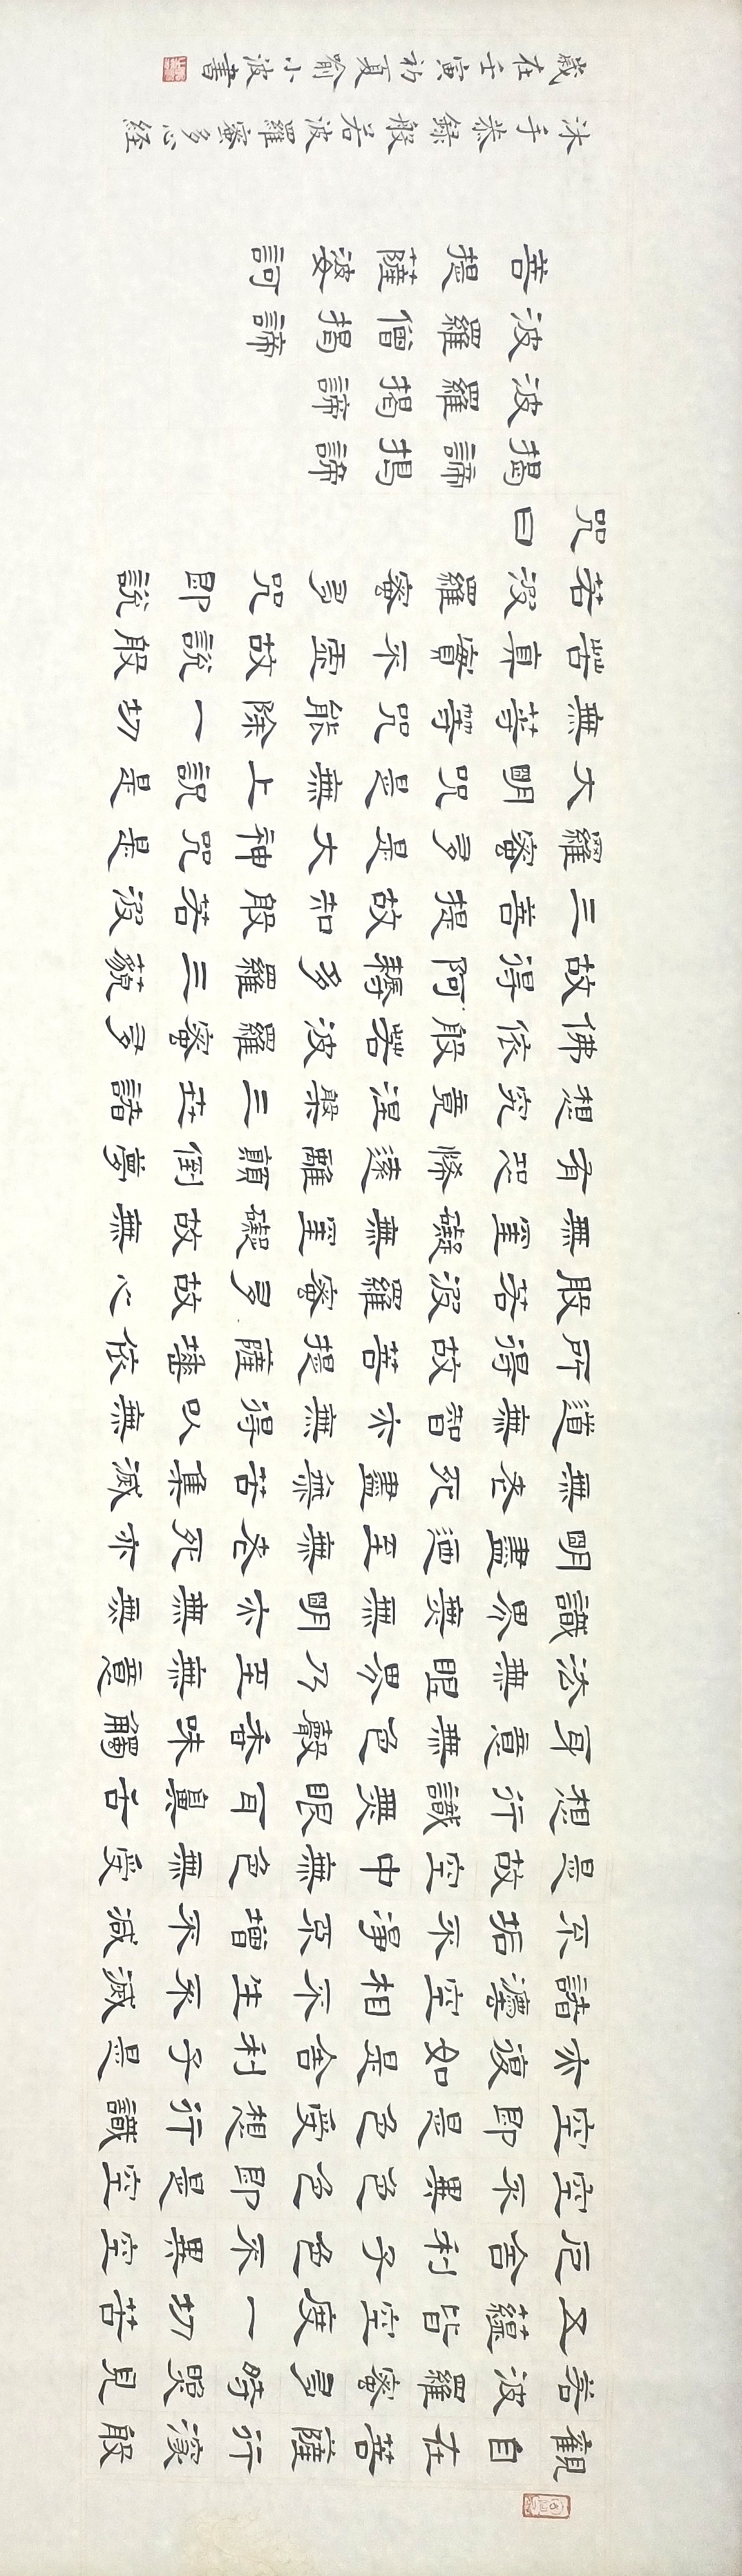 觀自在菩薩行深般
若波羅蜜多時照見
五蘊皆空度一切苦
厄舍利子色不異空
空不異色色即是空
空即是色受想行識
亦復如是舍利子是
諸灋空相不生不滅
不垢不淨不增不減
是故空中無色無受
想行識無眼耳鼻舌
身意無色聲香味觸
法無眼界乃至無意
識界無無明亦無無
明盡乃至無老死亦
無老死盡無苦集滅
道無智亦無得以無
所得故菩提薩埵依
般若波羅蜜多故心
無罣礙無罣礙故無
有恐怖遠離顛倒夢
想究竟涅槃三世諸
佛依般若波羅蜜多
故得阿耨多羅三藐
三菩提故知般若波
羅蜜多是大神咒是
大明咒是無上咒是
無等等咒能除一切
苦真實不虛故說般
若波羅蜜多咒即說
咒曰
揭諦揭諦
波羅揭諦
波羅僧揭諦
菩提薩婆訶
沐手恭錄般若波羅蜜多心経
歲在壬寅初夏喻小波書